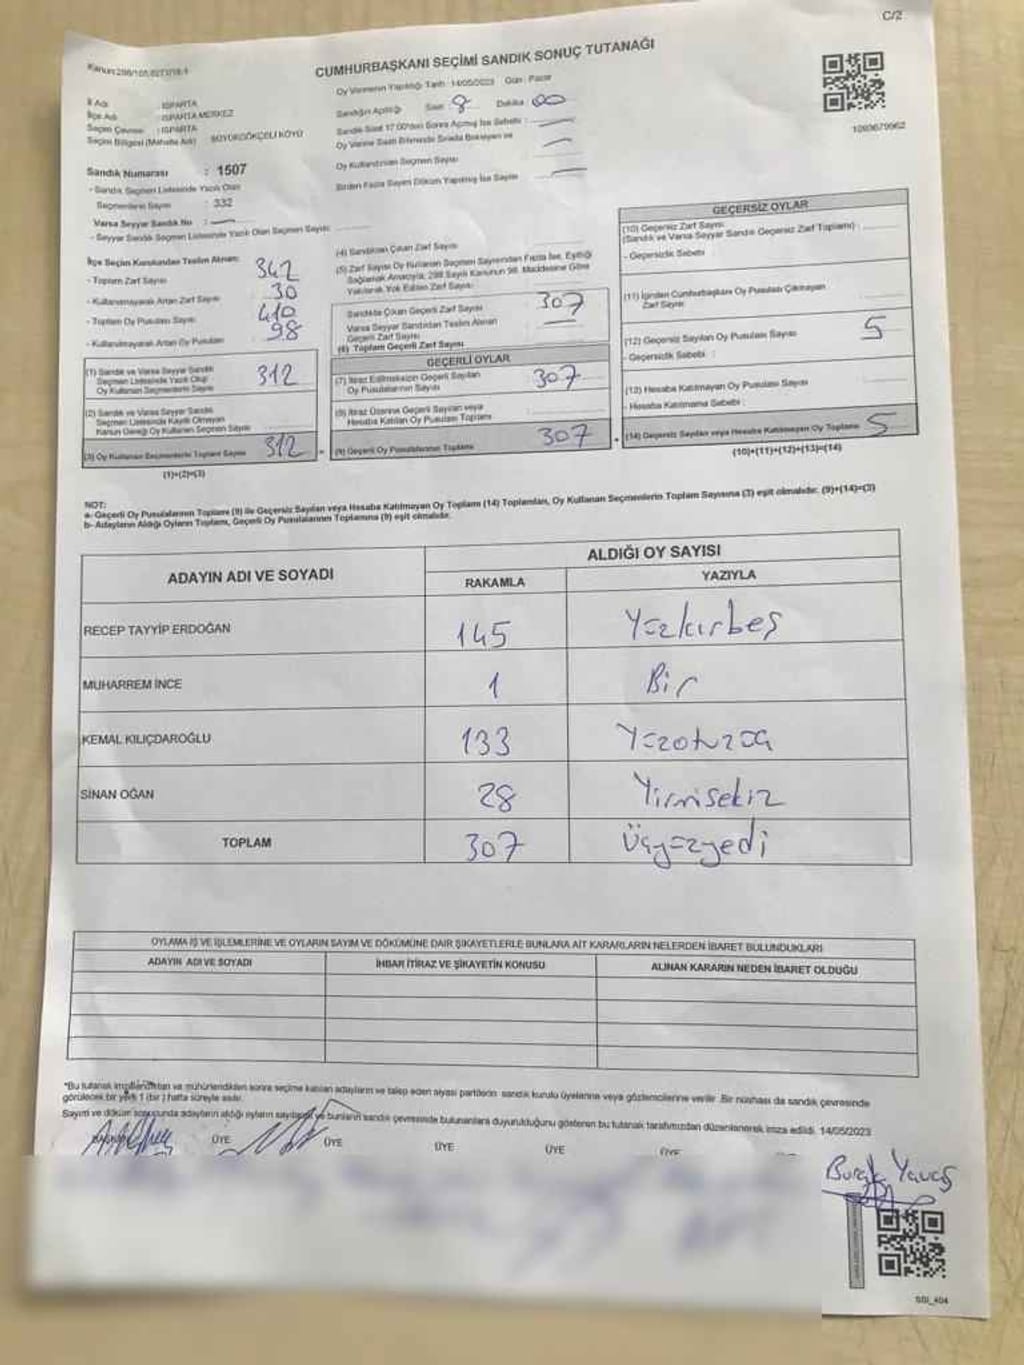 C/2
CUMHURBAŞKANI SEÇİMİ SANDIK SONUÇ TUTANAĞI
Oy Vermenin Yapıldığı Tarih : 14/05/2023 Gün : Pazar
İl Adı : ISPARTA
İlçe Adı : ISPARTA MERKEZ
Seçim Çevresi : ISPARTA
Seçim Bölgesi (Mahalle Adı) BÜYÜKGÖKÇELİ KÖYÜ
Sandığın Açıldığı Saat : 8 Dakika : 00
Sandık Saat 17.00'den Sonra Açılmış İse Sebebi :
Oy Verme Saati Bitiminde Sırada Bekleyen ve
Oy Kullandırılan Seçmen Sayısı
Birden Fazla Sayım Döküm Yapılmış İse Sayısı
1093679962
Sandık Numarası : 1507
- Sandık Seçmen Listesinde Yazılı Olan
Seçmenlerin Sayısı : 332
Varsa Seyyar Sandık No :
- Seyyar Sandık Seçmen Listesinde Yazılı Olan Seçmen Sayısı
İlçe Seçim Kurulundan Teslim Alınan:
- Toplam Zarf Sayısı 342
- Kullanılmayarak Artan Zarf Sayısı 30
- Toplam Oy Pusulası Sayısı 410
- Kullanılmayarak Artan Oy Pusulası 98
(1) Sandık ve Varsa Seyyar Sandık
Seçmen Listesinde Yazılı Olup
Oy Kullanan Seçmenlerin Sayısı 312
(2) Sandık ve Varsa Seyyar Sandık
Seçmen Listesinde Kayıtlı Olmayan
Kanun Gereği Oy Kullanan Seçmen Sayısı
(3) Oy Kullanan Seçmenlerin Toplam Sayısı 312
(1)+(2)=(3)
(4) Sandıktan Çıkan Zarf Sayısı
(5) Zarf Sayısı Oy Kullanan Seçmen Sayısından Fazla İse, Eşitliği
Sağlamak Amacıyla, 298 Sayılı Kanunun 98. Maddesine Göre
Yakılarak Yok Edilen Zarf Sayısı
Sandıkta Çıkan Geçerli Zarf Sayısı 307
Varsa Seyyar Sandıktan Teslim Alınan
Geçerli Zarf Sayısı
(6) Toplam Geçerli Zarf Sayısı
GEÇERLİ OYLAR
(7) İtiraz Edilmeksizin Geçerli Sayılan
Oy Pusulalarının Sayısı 307
(8) İtiraz Üzerine Geçerli Sayılan veya
Hesaba Katılan Oy Pusulası Toplamı
(9) Geçerli Oy Pusulalarının Toplamı 307
GEÇERSİZ OYLAR
(10) Geçersiz Zarf Sayısı
(Sandık ve Varsa Seyyar Sandık Geçersiz Zarf Toplamı) :
- Geçersizlik Sebebi :
(11) İçinden Cumhurbaşkanı Oy Pusulası Çıkmayan
Zarf Sayısı
(12) Geçersiz Sayılan Oy Pusulası Sayısı 5
- Geçersizlik Sebebi :
(13) Hesaba Katılmayan Oy Pusulası Sayısı
- Hesaba Katılmama Sebebi :
(14) Geçersiz Sayılan veya Hesaba Katılmayan Oy Toplamı 5
(10)+(11)+(12)+(13)=(14)
NOT:
a- Geçerli Oy Pusulalarının Toplamı (9) ile Geçersiz Sayılan veya Hesaba Katılmayan Oy Toplamı (14) Toplamları, Oy Kullanan Seçmenlerin Toplam Sayısına (3) eşit olmalıdır. (9)+(14)=(3)
b- Adayların Aldığı Oyların Toplamı, Geçerli Oy Pusulalarının Toplamına (9) eşit olmalıdır.
ADAYIN ADI VE SOYADI ALDIĞI OY SAYISI
RAKAMLA YAZIYLA
RECEP TAYYİP ERDOĞAN 145 Yüzkırbeş
MUHARREM İNCE 1 Bir
KEMAL KILIÇDAROĞLU 133 Yüzotuzüç
SİNAN OĞAN 28 Yirmisekiz
TOPLAM 307 Üçyüzyedi
OYLAMA İŞ VE İŞLEMLERİNE VE OYLARIN SAYIM VE DÖKÜMÜNE DAİR ŞİKAYETLERLE BUNLARA AİT KARARLARIN NELERDEN İBARET BULUNDUKLARI
ADAYIN ADI VE SOYADI İHBAR İTİRAZ VE ŞİKAYETİN KONUSU ALINAN KARARIN NEDEN İBARET OLDUĞU
*Bu tutanak imzalandıktan ve mühürlendikten sonra seçime katılan adayların ve talep eden siyasi partilerin sandık kurulu üyelerine veya gözlemcilerine verilir. Bir nüshası da sandık çevresinde
görülecek bir yere 1 (bir) hafta süreyle asılır.
Sayım ve döküm sonucunda adayların aldığı oyların sayıları ve bunların sandık çevresinde bulunanlara duyurulduğunu gösteren bu tutanak tarafımızdan düzenlenerek imza edildi. 14/05/2023
BAŞKAN ÜYE ÜYE ÜYE ÜYE ÜYE
Burak Yavaş